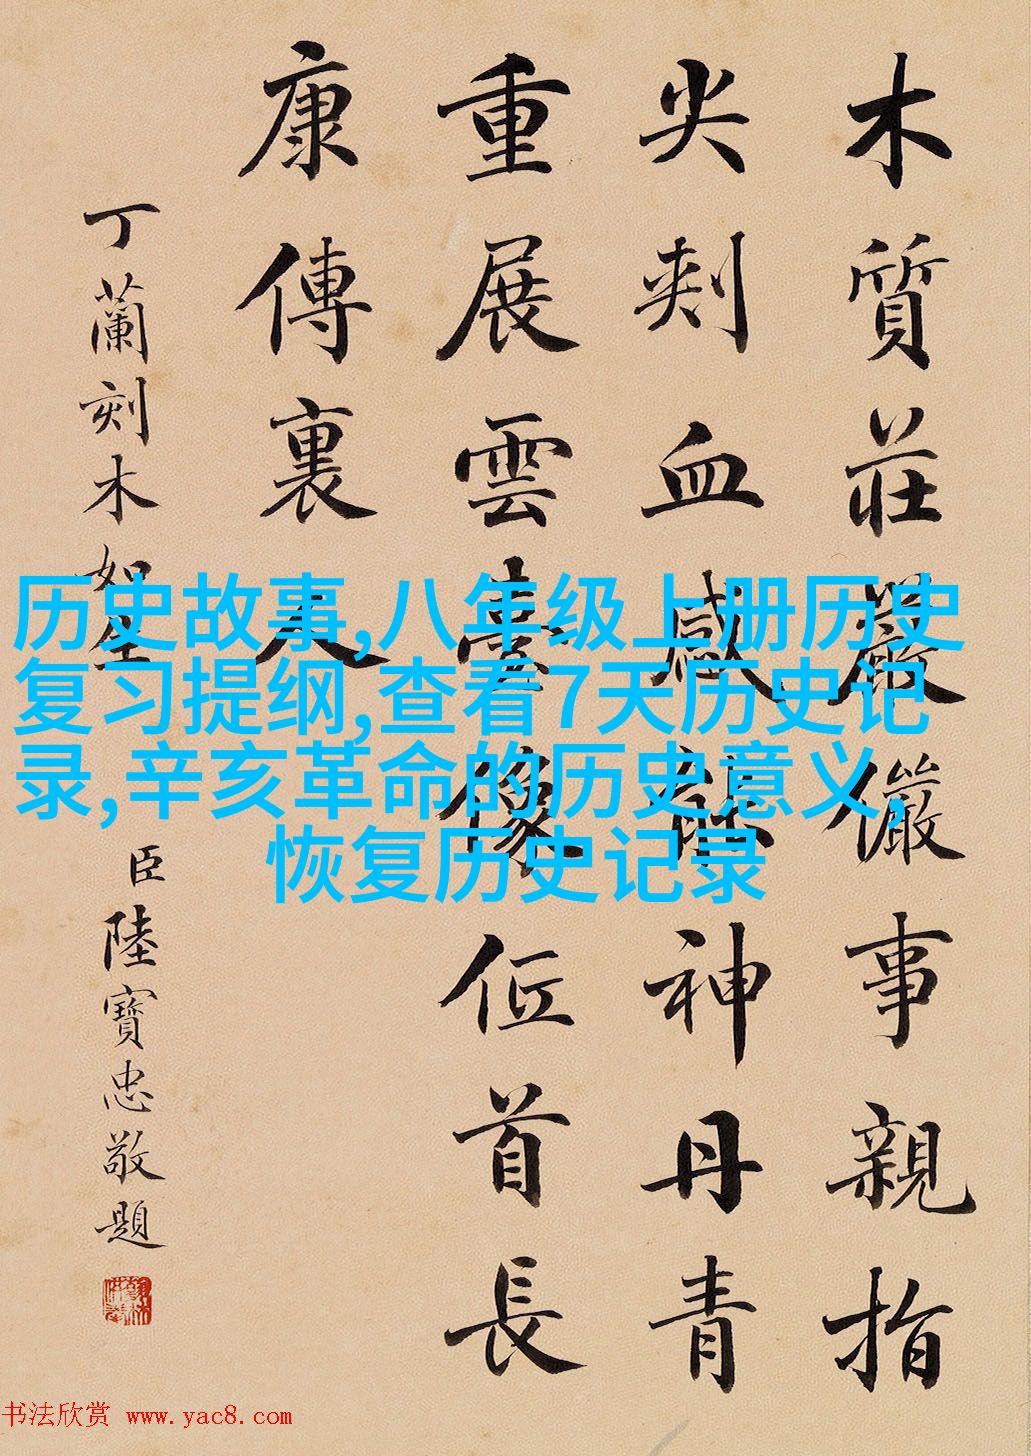 木質莊嚴儼事親指
尖刾血感能神丹青
重展雲臺像位首長
康傳裏人
丁蘭刻木如生
臣陸寶忠敬題
历史故事,八年级上册历史
复习提纲,查看7天历史记
录,辛亥革命的历史意义,
恢复历史记录
书法欣赏 www.yac8.com